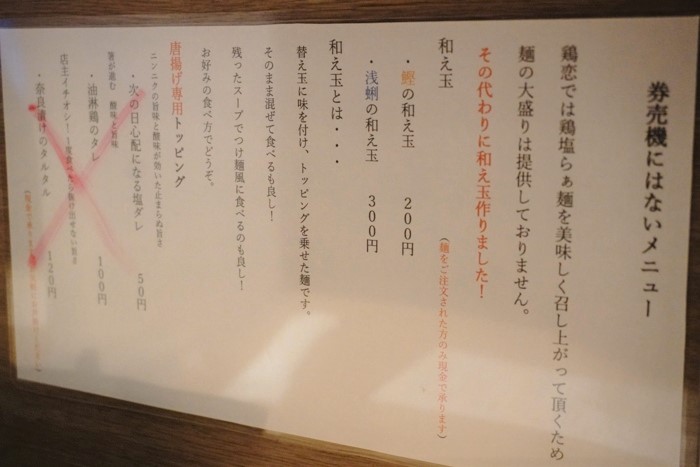 券売機にはないメニュー
鶏恋では鶏塩らぁ麺を美味しく召し上がって頂くため
麺の大盛りは提供しておりません。
その代わりに和え玉作りました!
和え玉
(麺をご注文された方のみ現金で承ります)
・鰹の和え玉 200円
・浅蜊の和え玉 300円
和え玉とは・・・
替え玉に味を付け、トッピングを乗せた麺です。
そのまま混ぜて食べるも良し!
残ったスープでつけ麺風に食べるのも良し!
お好みの食べ方でどうぞ。
唐揚げ専用トッピング
ニンニクの旨味と酸味が効いた止まらぬ旨さ
・次の日心配になる塩ダレ 50円
箸が進む 酸味と旨味
・油淋鶏のタレ 100円
店主イチオシ!一度食べたら抜け出せない旨さ
・奈良漬けのタルタル 120円